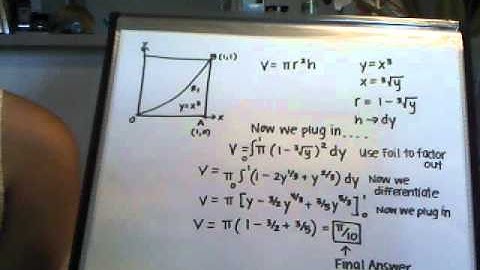 (1,1)
R₁
y=x³
O
x
A
(1,0)
V = πr²h
y=x³
x=³√y
r = 1-³√y
h → dy
Now we plug in....
V=₀∫¹π(1-³√y)² dy Use Foil to factor out
V= π ₀∫¹(1-2y^1/3 + y^2/3) dy Now we differentiate
V = π [y - 3/2y^4/3 + 3/5y^5/3]₀¹ Now we plug in
V = π(1-3/2+3/5) = π/10
↑
Final Answer